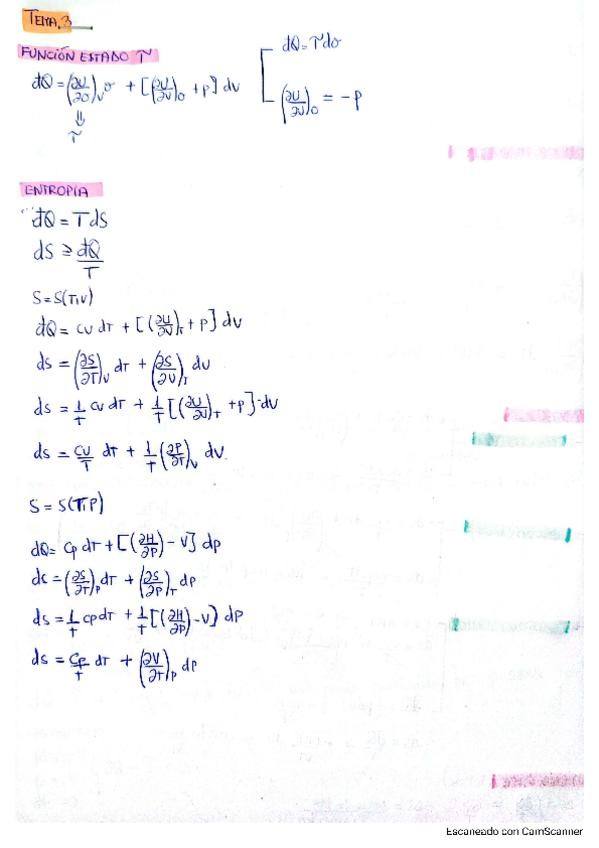 TEMA 3
FUNCIÓN ESTADO τ
đQ = (∂U/∂σ)_V σ + [(∂U/∂V)_σ + p] dv
⇓
τ
đQ = τdσ
(∂U/∂V)_σ = -p
ENTROPÍA
đQ = TdS
dS ≥ đQ/T
S = S(T,V)
đQ = CV dT + [(∂U/∂V)_T + p] dv
ds = (∂S/∂T)_V dT + (∂S/∂V)_T dv
ds = 1/T CV dT + 1/T [(∂U/∂V)_T + p] · dv
ds = CV/T dT + 1/T (∂P/∂T)_V dv.
S = S(T,P)
đQ = Cp dT + [(∂H/∂P) - V] dp
ds = (∂S/∂T)_P dT + (∂S/∂P)_T dp
ds = 1/T Cp dT + 1/T [(∂H/∂P) - V] dp
ds = Cp/T dT + (∂V/∂T)_P dp
Escaneado con CamScanner